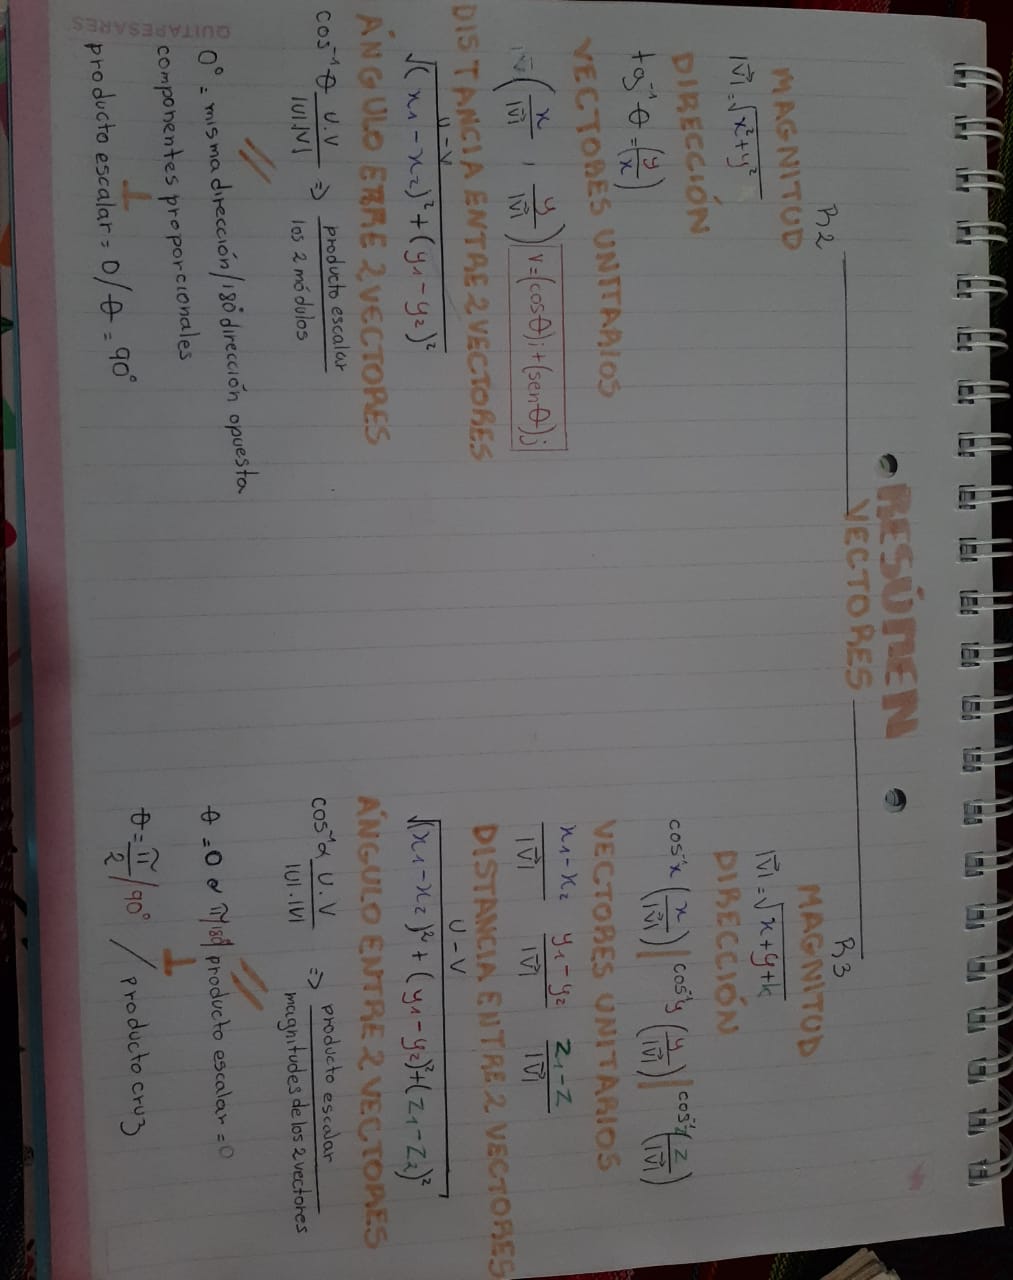 RESÚMEN
VECTORES
R2
MAGNITUD
|V⃗|=√x²+y²
DIRECCIÓN
tg⁻¹ θ = (y/x)
VECTORES UNITARIOS
V⃗ (x/|V⃗| , y/|V⃗|) V=(cosθ)i+(senθ)j
DISTANCIA ENTRE 2 VECTORES
U-V
√(x1-x2)²+(y1-y2)²
ÁNGULO ENTRE 2 VECTORES
cos⁻¹ θ U.V/|U|.|V| => producto escalar/los 2 módulos
//
0° = misma dirección/180° dirección opuesta
componentes proporcionales
⊥
producto escalar = 0/θ = 90°
R3
MAGNITUD
|V⃗|=√x+y+k
DIRECCIÓN
cos⁻¹x (x/|V⃗|) | cos⁻¹y (y/|V⃗|) | cos⁻¹z (z/|V⃗|)
VECTORES UNITARIOS
x1-x2/|V⃗| y1-y2/|V⃗| z1-z/|V⃗|
DISTANCIA ENTRE 2 VECTORES
U-V
√(x1-x2)²+(y1-y2)²+(z1-z2)²
ÁNGULO ENTRE 2 VECTORES
cos⁻¹α U.V/|U|.|V| => producto escalar/magnitudes de los 2 vectores
//
θ = 0 o π/180 producto escalar = 0
⊥
θ = π/2 /90° / producto cruz
QUITAPESARES